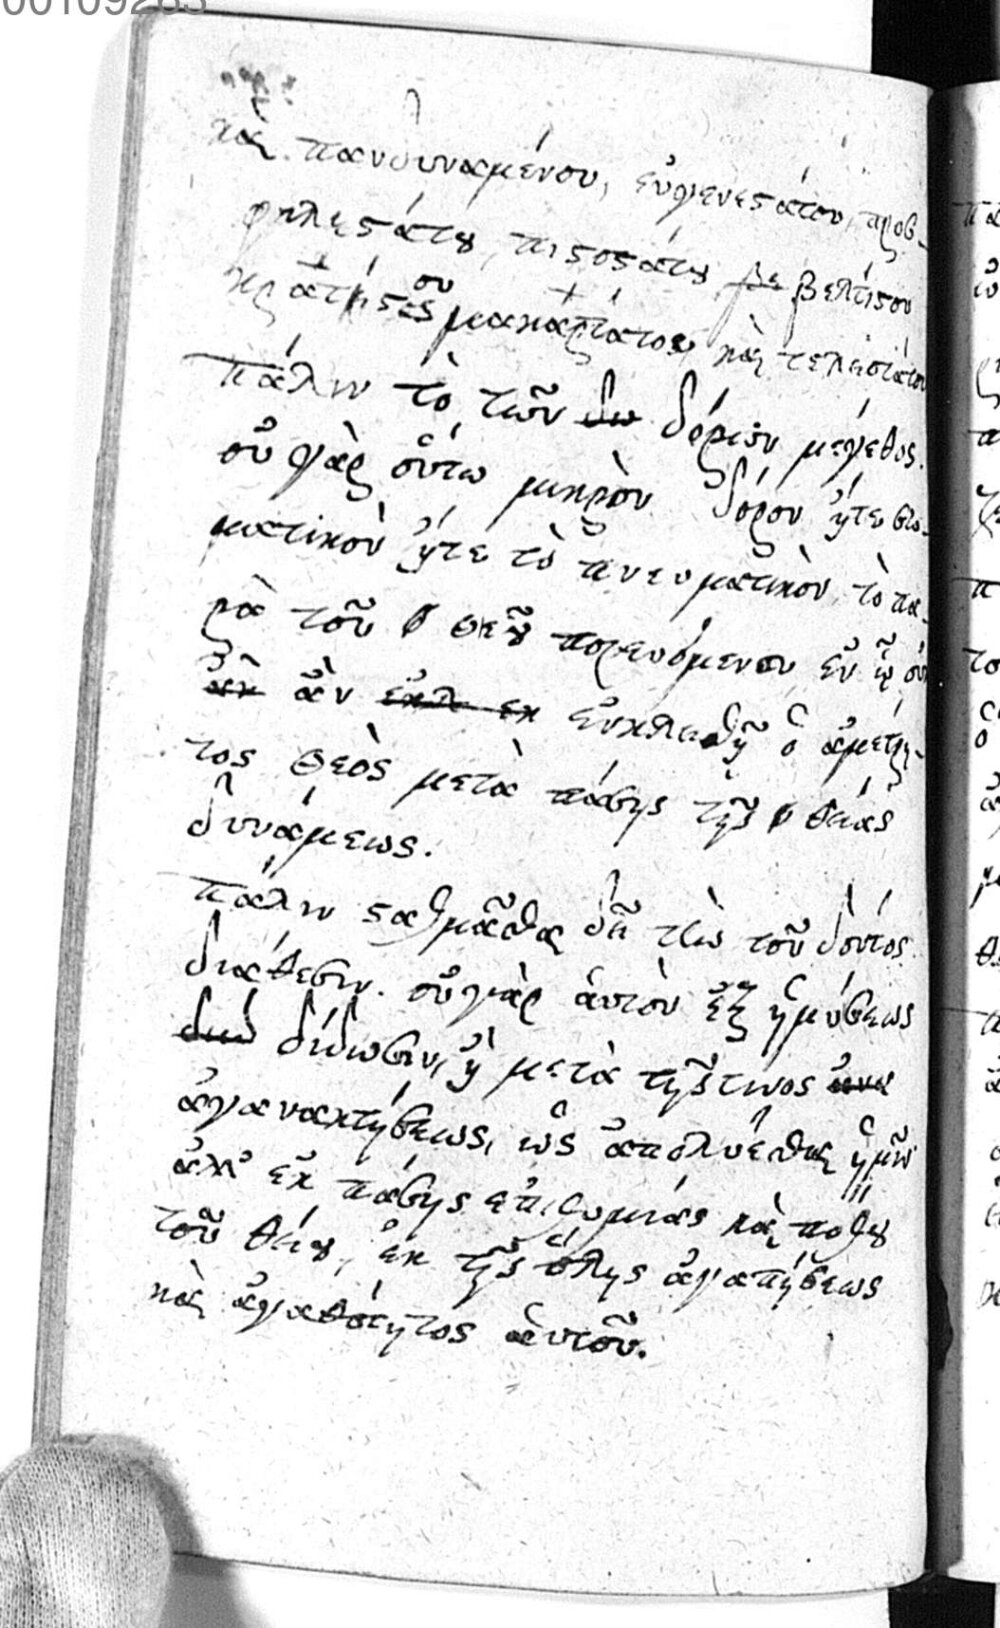 00109283
καὶ πανδυναμένου, εὐγενεστάτου, προσ-
φιλεστάτου, πιστοτάτου βε βελτίστου
κρατίστου μακαριτάτου, καὶ τελειοτάτου
πάλιν τὸ τῶν δω δόρων μέγεθος.
οὐ γὰρ οὕτω μικρὸν δόρον ἤτε σω-
ματικὸν ἤτε τὸ πνευματικὸν, τὸ πα-
ρὰ τοῦ θεοῦ πορευόμενον ἐν ᾧ οὐκ
ἂν ἐγκλεισθῇ ὁ ἀμέτρη-
τος θεὸς μετὰ πάσης τῆς θείας
δυνάμεως.
πάλιν σταθμᾶσθαι δεῖ τὴν τοῦ δόντος
διάθεσιν. οὐ γὰρ αὐτὸν ἐξ ἡμύσεως
διδ δίδωσιν, ἢ μετὰ τῆς τινος
ἀγανακτήσεως, ὡς ἀπολύεσθαι ἡμῶν
ἀλλ' ἐκ πάσης ἐπιθυμίας καὶ πόθου
τοῦ θείου, ἐκ τῆς ὅλης ἀγαπήσεως
καὶ ἀγαθότητος αὐτοῦ.